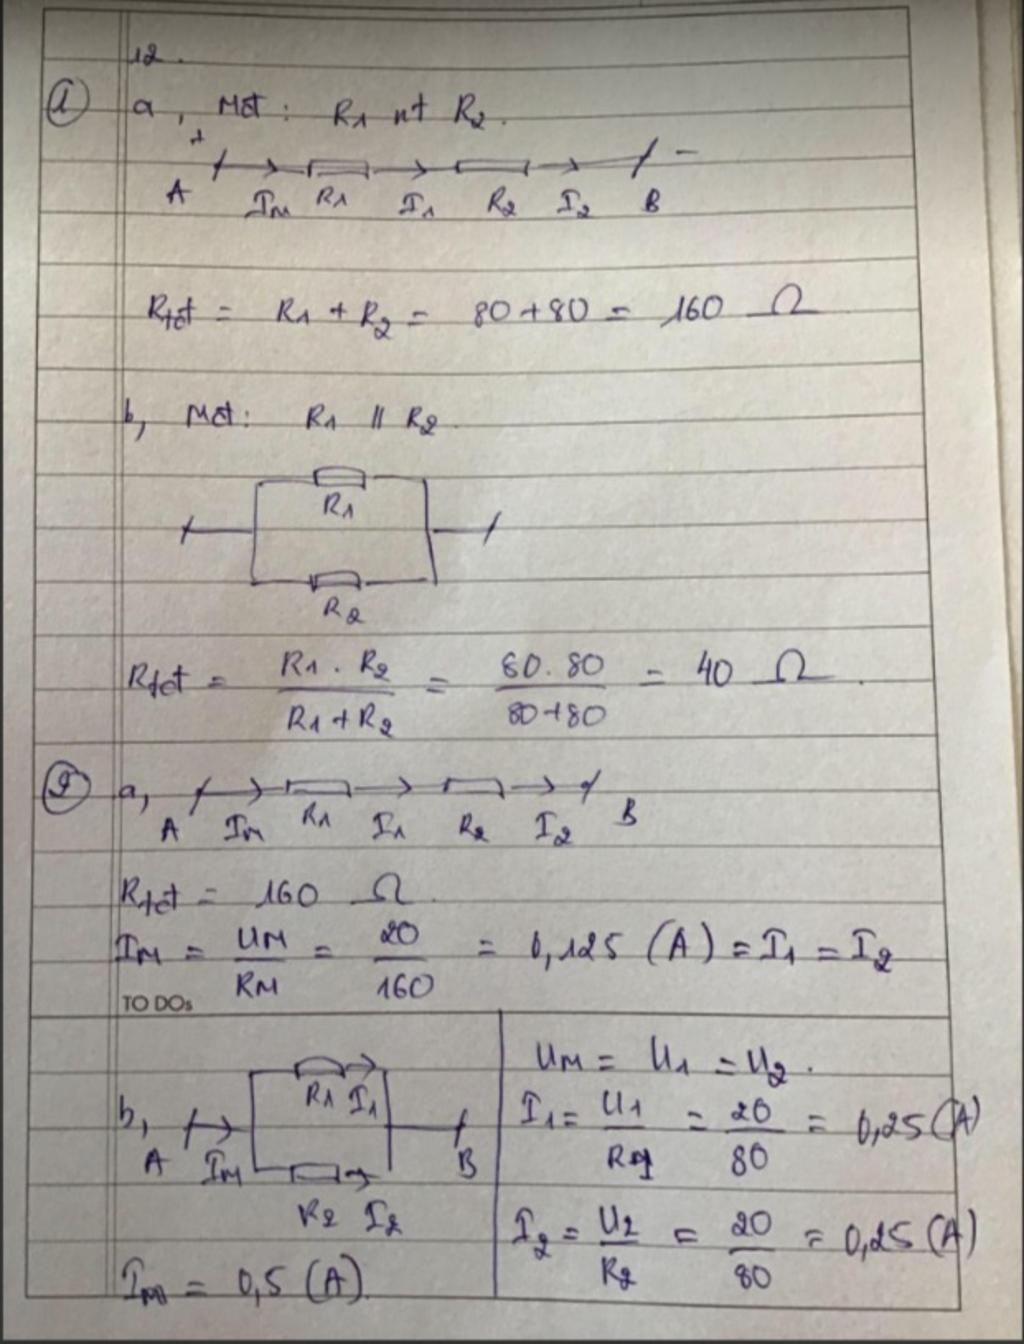 12.
① a, Mct: R1 nt R2.
+ -
A Im R1 I1 R2 I2 B
Rtot = R1 + R2 = 80+80 = 160 Ω
b, Mct: R1 // R2
R1
R2
Rtot = R1 . R2 / R1 + R2 = 80.80 / 80+80 = 40 Ω.
② a,
A Im R1 I1 R2 I2 B
Rtot = 160 Ω.
IM = UM / RM = 20 / 160 = 0,125 (A) = I1 = I2
TO DOs
b, A Im R1 I1 B
R2 I2
Im = 0,5 (A).
UM = U1 = U2.
I1 = U1 / R1 = 20 / 80 = 0,25 (A)
I2 = U2 / R2 = 20 / 80 = 0,25 (A)